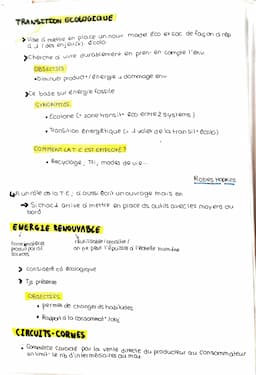 TRANSITION ECOLOGIQUE
> Vise à mettre en place un nouv model éco et soc de façon à rép
à 1 des enjeu(x) écolo
> Cherche à vivre durablement en pren- en compte l'env
OBJECTIFS
Diminuer product°/énergie + dommage env
> Se base sur énergie fossile
SYNONYMES
• Ecotone (= zone transit° eco entre 2 systèms)
• Transition énergétique (= 1 volet de la transit° écolo)
COMMENT LA T.C EST EMPLOYÉ?
• Recyclage, Tri, modes de vie...
Robies Hopkins
A un rôle ds la T.C, a aussi écrit un ouvrage mais en
→ Si chacun arrive à mettre en place ds outils avec les moyens du
bord
ENERGIE RENOUVABLE
> considéré cô écologique
> Tjs présente
OBJECTIFS
• permet de changer ds habitudes
• Rapport à la consommat°
CIRCUITS-CORNES
• Commerce caract par la vente directe du producteur au consommateur
en limit- le nb d'intermédiaires au max